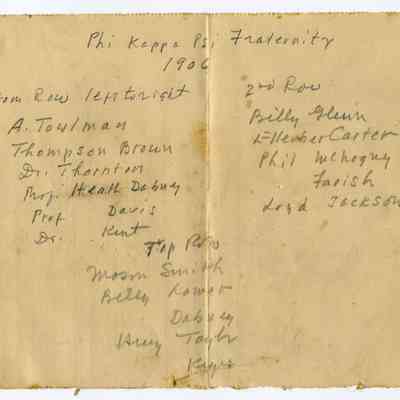 Phi Kappa Psi Fraternity
1906
om Row left to right
A. Towlman
Thompson Brown
Dr. Thornton
Prof. Heath Dabney
Prof. Davis
Dr. Kent
2nd Row
Billy Glenn
Carter
Phil
Farish
Loyd Jackson
Top Row
Mason Smith
Billy
Dabney
Henry Taylor